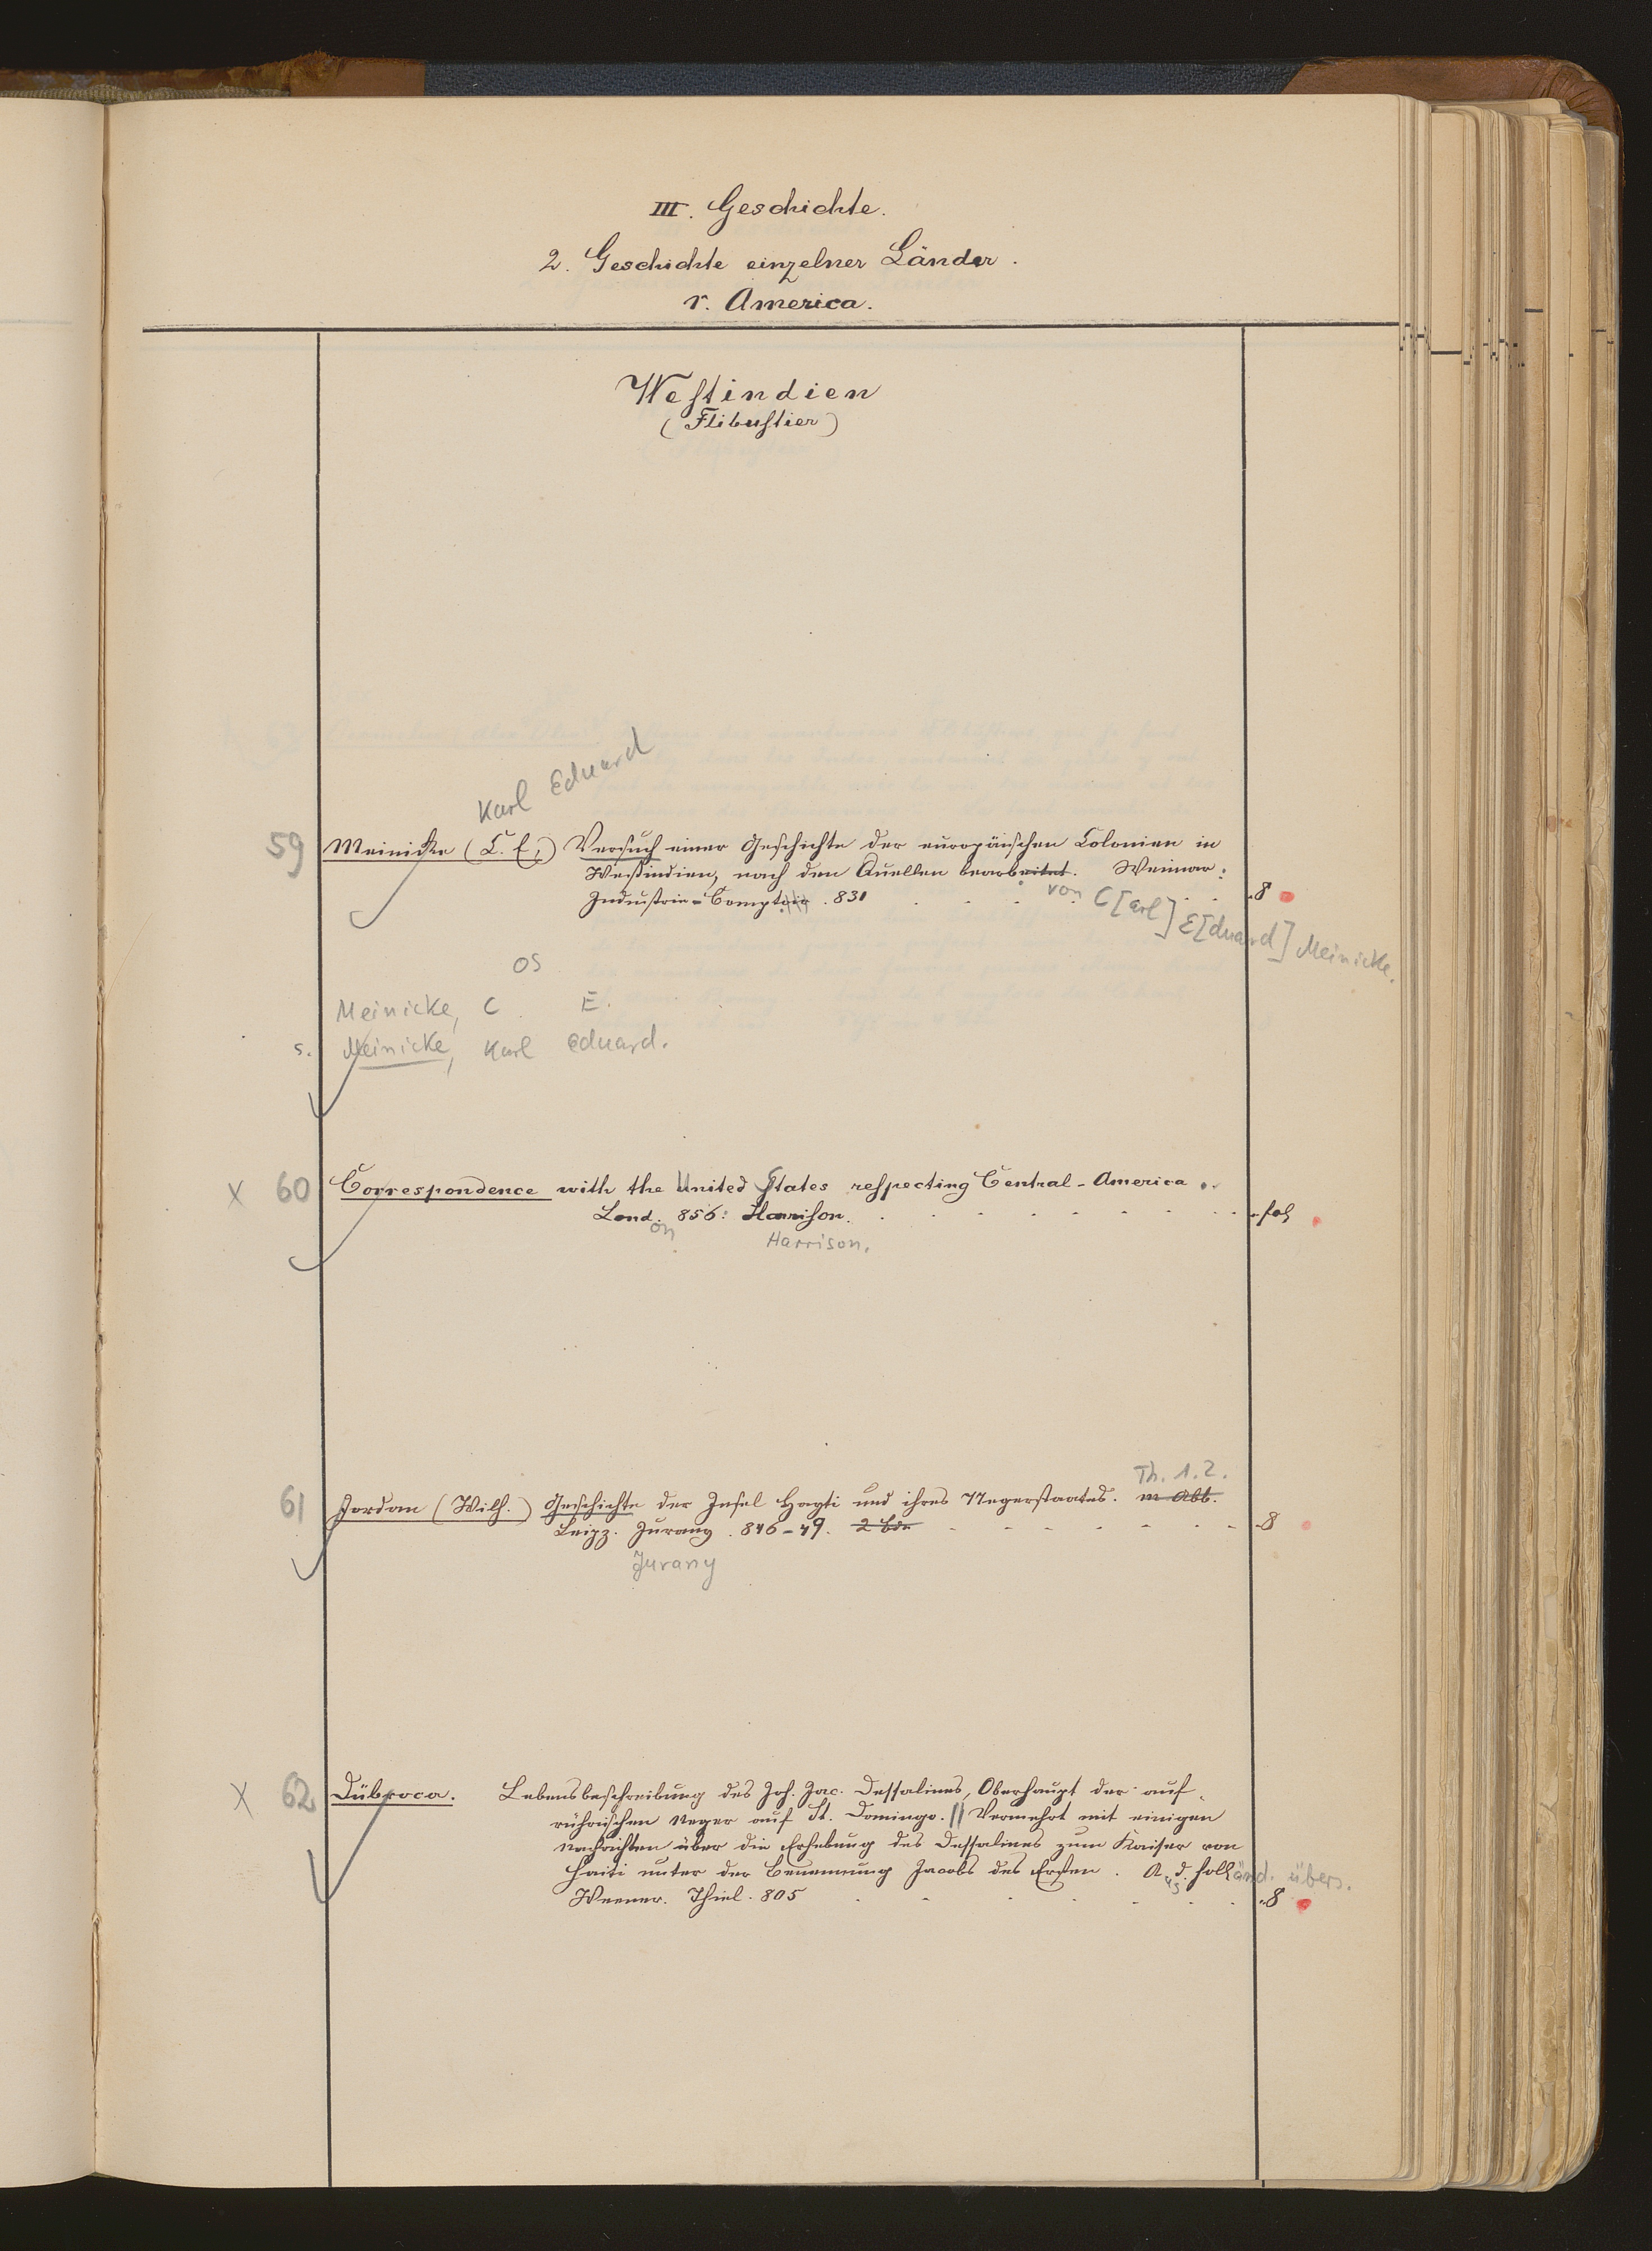 III. Geschichte.
2. Geschichte einzelner Länder.
r. America.
Westindien
(Flibustier)
Karl Eduard
59 Meinicke (C. E.) Versuch einer Geschichte der europäischen Colonien in
Westindien, nach den Quellen bearbeitet. Weimar:
Industrie-Comptoir. 831 . . . . 8
von C[arl] E[duard] Meinicke.
OS
Meinicke, C. E.
s. Meinicke, Karl Eduard.
x 60 Correspondence with the United States respecting Central-America.
Lond. 856: Harrison. . . . . . . . . fol
on Harrison.
Th. 1.2.
61 Jordan (Wilh.) Geschichte der Insel Hayti und ihres Negerstaates. in Abt.
Leipz. Jurany. 846-49. 2 Bde - - - - - - - 8
Jurany
x 62 Dübroca. Lebensbeschreibung des Joh. Jac. Dessalines, Oberhaupt der auf-
rührischen Neger auf St. Domingo. || Vermehrt mit einigen
Nachrichten über die Erhebung des Dessalines zum Kaiser von
Haiti unter der Benennung Jacobs des Ersten. Aus d. Holländ. übers.
Weener. Thiel. 805 . . . . . . 8